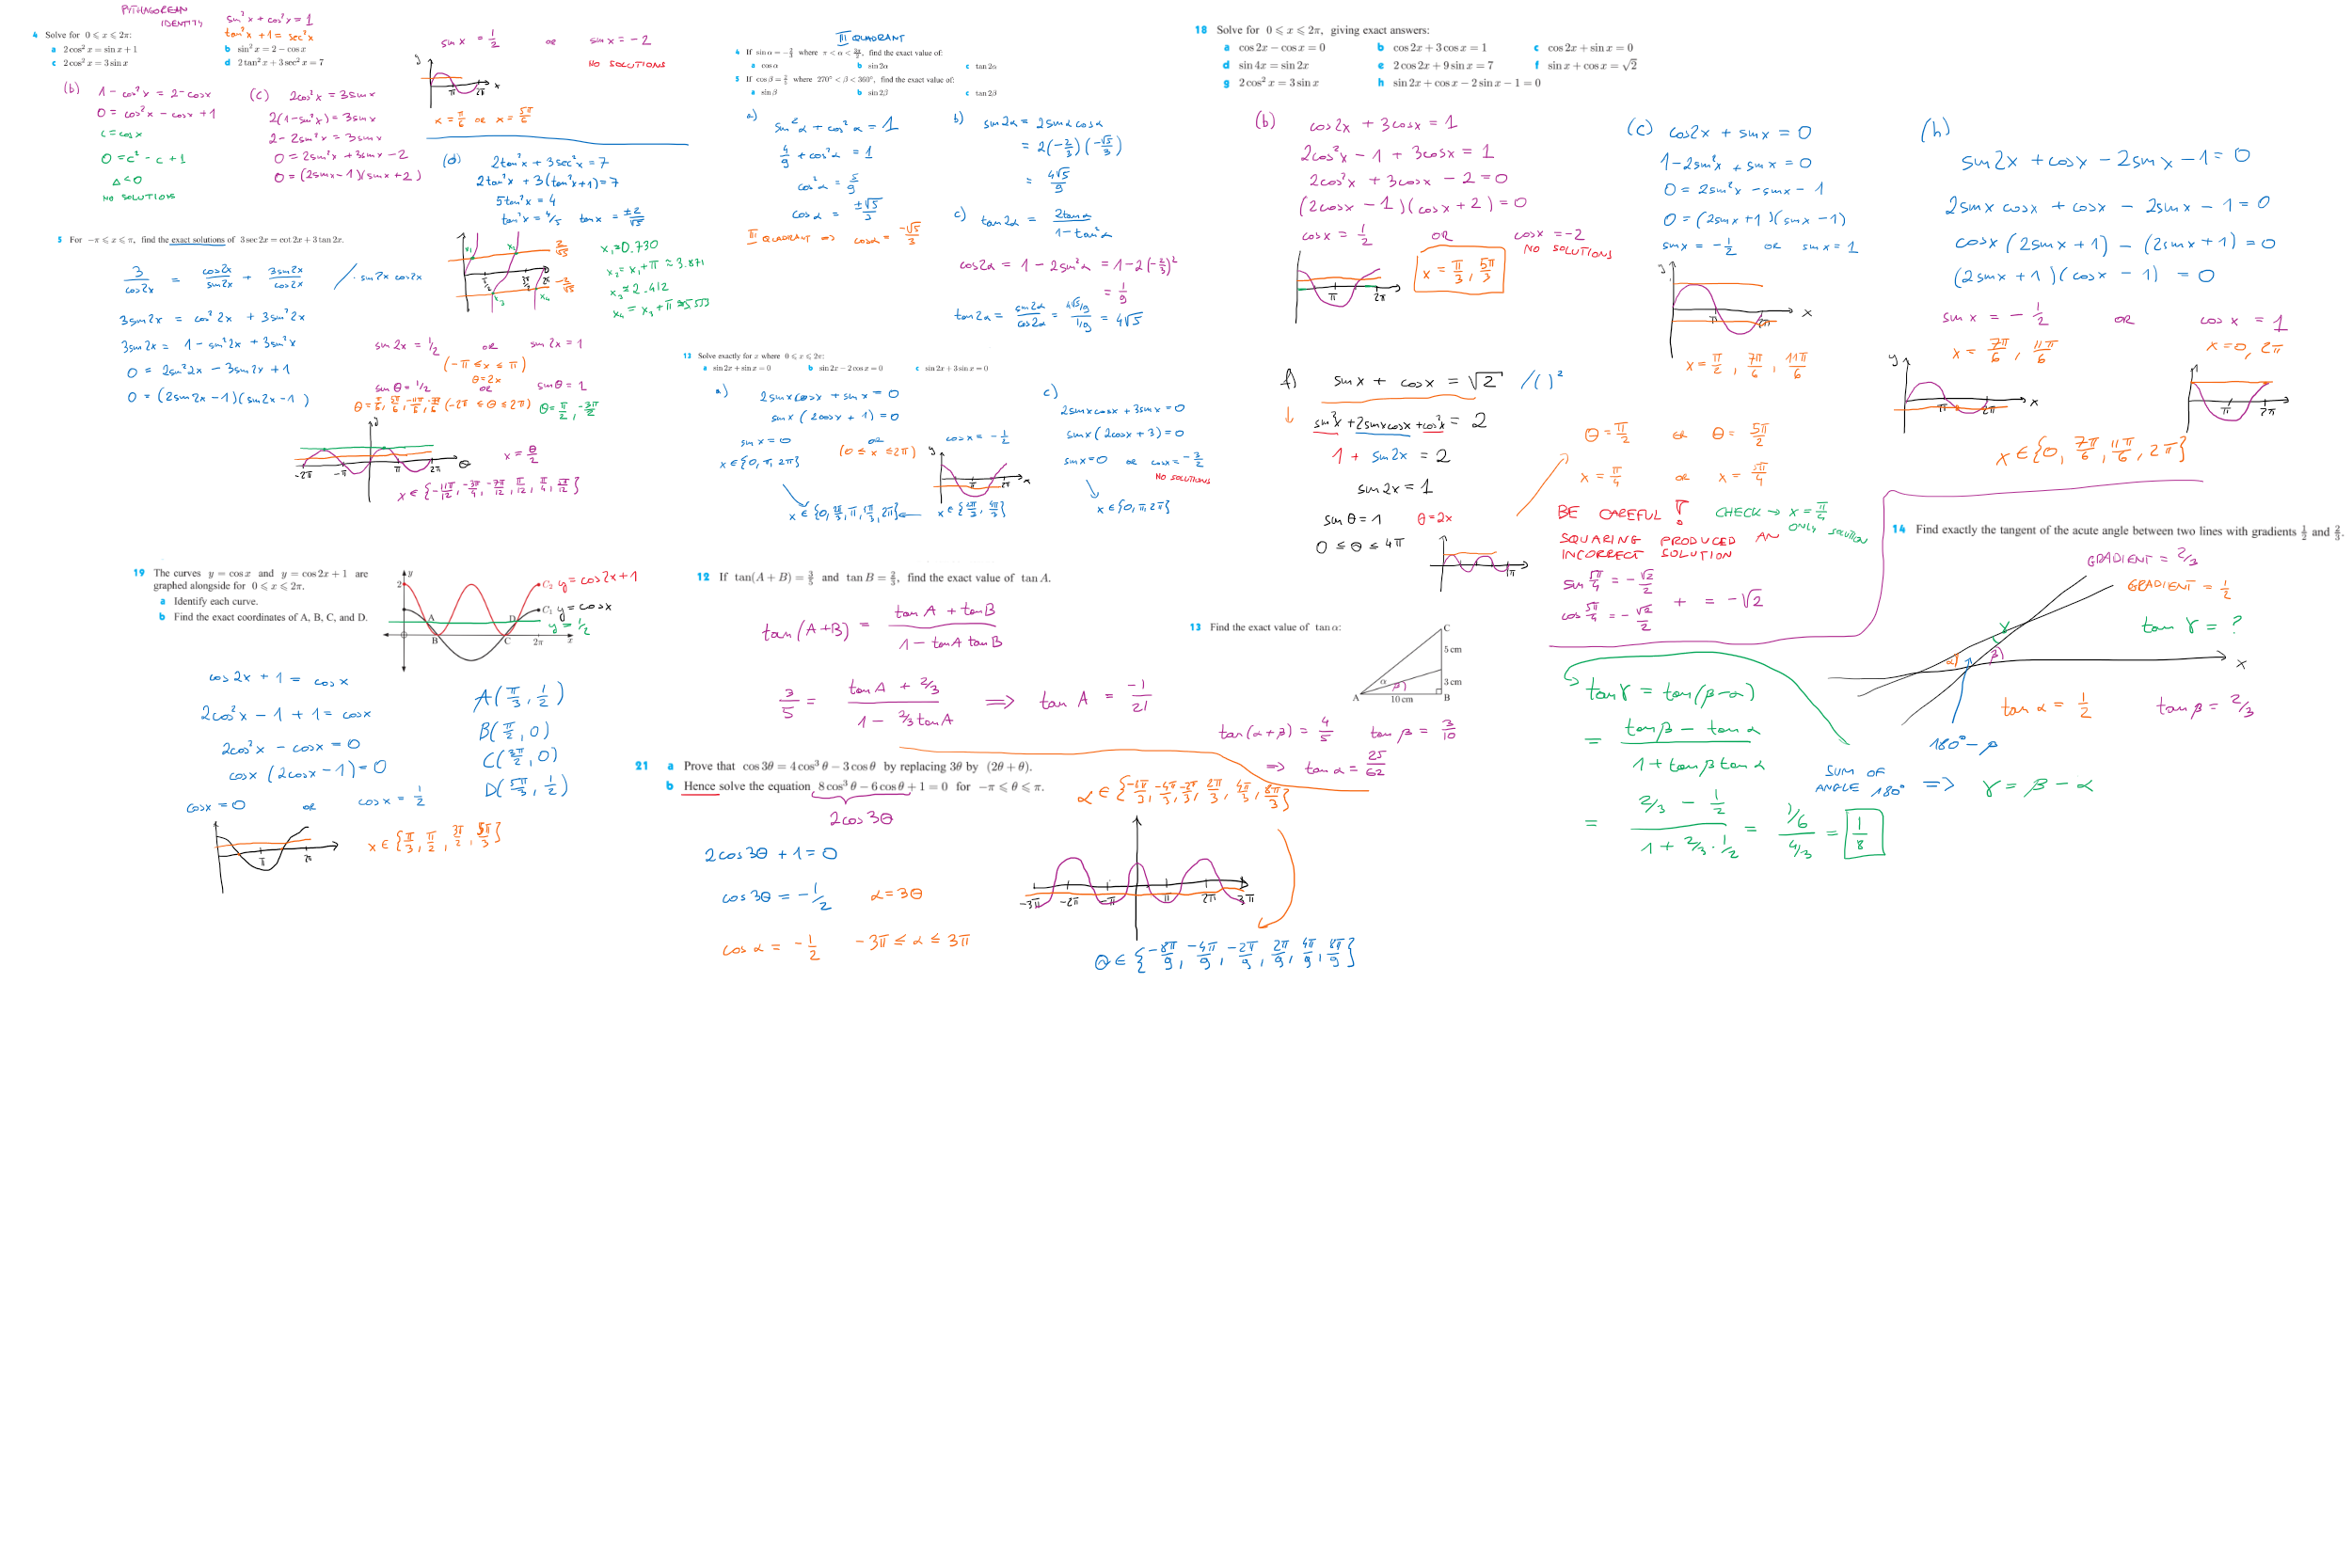 PYTHAGOREAN IDENTITY
sin²x + cos²x = 1
tan²x + 1 = sec²x
4 Solve for 0 ⩽ x ⩽ 2π:
a 2cos²x = sin x + 1
b sin²x = 2 − cos x
c 2cos²x = 3 sin x
d 2 tan²x + 3 sec²x = 7
(b) 1 − cos²x = 2 − cosx
0 = cos²x − cosx + 1
c = cosx
0 = c² − c + 1
Δ < 0
NO SOLUTIONS
(c) 2cos²x = 3sinx
2(1−sin²x) = 3sinx
2 − 2sin²x = 3sinx
0 = 2sin²x + 3sinx − 2
0 = (2sinx − 1)(sinx + 2)
sin x = 1/2 OR sinx = −2
NO SOLUTIONS
y
π 2π x
x = π/6 OR x = 5π/6
(d) 2tan²x + 3sec²x = 7
2tan²x + 3(tan²x+1) = 7
5tan²x = 4
tan²x = 4/5 tanx = ±2/√5
x₁ ≐ 0.730
x₂ = x₁ + π ≐ 3.871
x₃ ≐ 2.412
x₄ = x₃ + π ≐ 5.553
5 For −π ⩽ x ⩽ π, find the exact solutions of 3 sec 2x = cot 2x + 3 tan 2x.
3/cos2x = cos2x/sin2x + 3sin2x/cos2x / · sin2x cos2x
3sin2x = cos²2x + 3sin²2x
3sin2x = 1 − sin²2x + 3sin²x
0 = 2sin²2x − 3sin2x + 1
0 = (2sin2x − 1)(sin2x − 1)
sin 2x = 1/2 OR sin 2x = 1
(−π ≤ x ≤ π)
θ = 2x
sin θ = 1/2 OR sinθ = 1
θ = π/6, 5π/6, −11π/6, −7π/6 (−2π ≤ θ ≤ 2π) θ = π/2, −3π/2
−2π −π π 2π θ
x = θ/2
x ∈ {−11π/12, −3π/4, −7π/12, π/12, π/4, 5π/12}
III QUADRANT
4 If sin α = −2/3 where π < α < 3π/2, find the exact value of:
a cos α
b sin 2α
c tan 2α
5 If cos β = 2/5 where 270° < β < 360°, find the exact value of:
a sin β
b sin 2β
c tan 2β
a) sin²α + cos²α = 1
4/9 + cos²α = 1
cos²α = 5/9
cosα = ±√5/3
III QUADRANT ⇒ cosα = −√5/3
b) sin2α = 2sinα cosα
= 2(−2/3)(−√5/3)
= 4√5/9
c) tan2α = 2tanα/1−tan²α
cos2α = 1 − 2sin²α = 1 − 2(−2/3)²
= 1/9
tan2α = sin2α/cos2α = 4√5/9/1/9 = 4√5
13 Solve exactly for x where 0 ⩽ x ⩽ 2π:
a sin 2x + sin x = 0
b sin 2x − 2 cos x = 0
c sin 2x + 3 sin x = 0
a) 2sinxcosx + sinx = 0
sinx (2cosx + 1) = 0
sinx = 0 OR cosx = −1/2
x ∈ {0, π, 2π} (0 ≤ x ≤ 2π)
x ∈ {0, 2π/3, π, 4π/3, 2π} ← x ∈ {2π/3, 4π/3}
c) 2sinxcosx + 3sinx = 0
sinx (2cosx + 3) = 0
sinx = 0 OR cosx = −3/2
NO SOLUTIONS
x ∈ {0, π, 2π}
18 Solve for 0 ⩽ x ⩽ 2π, giving exact answers:
a cos 2x − cos x = 0
b cos 2x + 3 cos x = 1
c cos 2x + sin x = 0
d sin 4x = sin 2x
e 2 cos 2x + 9 sin x = 7
f sin x + cos x = √2
g 2 cos²x = 3 sin x
h sin 2x + cos x − 2 sin x − 1 = 0
(b) cos2x + 3cosx = 1
2cos²x − 1 + 3cosx = 1
2cos²x + 3cosx − 2 = 0
(2cosx − 1)(cosx + 2) = 0
cosx = 1/2 OR cosx = −2
NO SOLUTIONS
x = π/3, 5π/3
π 2π
(c) cos2x + sinx = 0
1 − 2sin²x + sinx = 0
0 = 2sin²x − sinx − 1
0 = (2sinx + 1)(sinx − 1)
sinx = −1/2 OR sinx = 1
x = π/2, 7π/6, 11π/6
(h)
sin2x + cosx − 2sinx − 1 = 0
2sinx cosx + cosx − 2sinx − 1 = 0
cosx (2sinx + 1) − (2sinx + 1) = 0
(2sinx + 1)(cosx − 1) = 0
sin x = −1/2 OR cosx = 1
x = 7π/6, 11π/6 x = 0, 2π
x ∈ {0, 7π/6, 11π/6, 2π}
f) sinx + cosx = √2 /( )²
sin²x + 2sinxcosx + cos²x = 2
1 + sin2x = 2
sin2x = 1
sin θ = 1 θ = 2x
0 ≤ θ ≤ 4π
θ = π/2 OR θ = 5π/2
x = π/4 OR x = 5π/4
BE CAREFUL ! CHECK → x = π/4 ONLY SOLUTION
SQUARING PRODUCED AN
INCORRECT SOLUTION
sin 5π/4 = −√2/2
cos 5π/4 = −√2/2
+ = −√2
14 Find exactly the tangent of the acute angle between two lines with gradients 1/2 and 2/3.
GRADIENT = 2/3
GRADIENT = 1/2
tan γ = ?
α γ β x
tan α = 1/2 tan β = 2/3
180° − β
SUM OF ANGLE 180° ⇒ γ = β − α
tanγ = tan(β−α)
= tanβ − tanα / 1 + tanβ tanα
= 2/3 − 1/2 / 1 + 2/3 · 1/2 = 1/6 / 4/3 = 1/8
19 The curves y = cos x and y = cos 2x + 1 are
graphed alongside for 0 ⩽ x ⩽ 2π.
a Identify each curve.
b Find the exact coordinates of A, B, C, and D.
y
2
C₂ y = cos2x+1
C₁ y = cosx
y = 1/2
A B C D 2π x
cos2x + 1 = cosx
2cos²x − 1 + 1 = cosx
2cos²x − cosx = 0
cosx (2cosx − 1) = 0
cosx = 0 OR cosx = 1/2
x ∈ {π/3, π/2, 3π/2, 5π/3}
A(π/3, 1/2)
B(π/2, 0)
C(3π/2, 0)
D(5π/3, 1/2)
12 If tan(A + B) = 3/5 and tan B = 2/3, find the exact value of tan A.
tan(A+B) = tan A + tan B / 1 − tanA tanB
3/5 = tan A + 2/3 / 1 − 2/3 tanA ⇒ tan A = −1/21
13 Find the exact value of tan α:
C
5 cm
3 cm
α β
A 10 cm B
tan(α+β) = 4/5 tan β = 3/10
⇒ tan α = 25/62
21 a Prove that cos 3θ = 4 cos³θ − 3 cos θ by replacing 3θ by (2θ + θ).
b Hence solve the equation 8 cos³θ − 6 cos θ + 1 = 0 for −π ⩽ θ ⩽ π.
2cos3θ
2cos3θ + 1 = 0
cos3θ = −1/2 α = 3θ
cos α = −1/2 −3π ≤ α ≤ 3π
α ∈ {−8π/3, −4π/3, −2π/3, 2π/3, 4π/3, 8π/3}
−3π −2π −π π 2π 3π
θ ∈ {−8π/9, −4π/9, −2π/9, 2π/9, 4π/9, 8π/9}